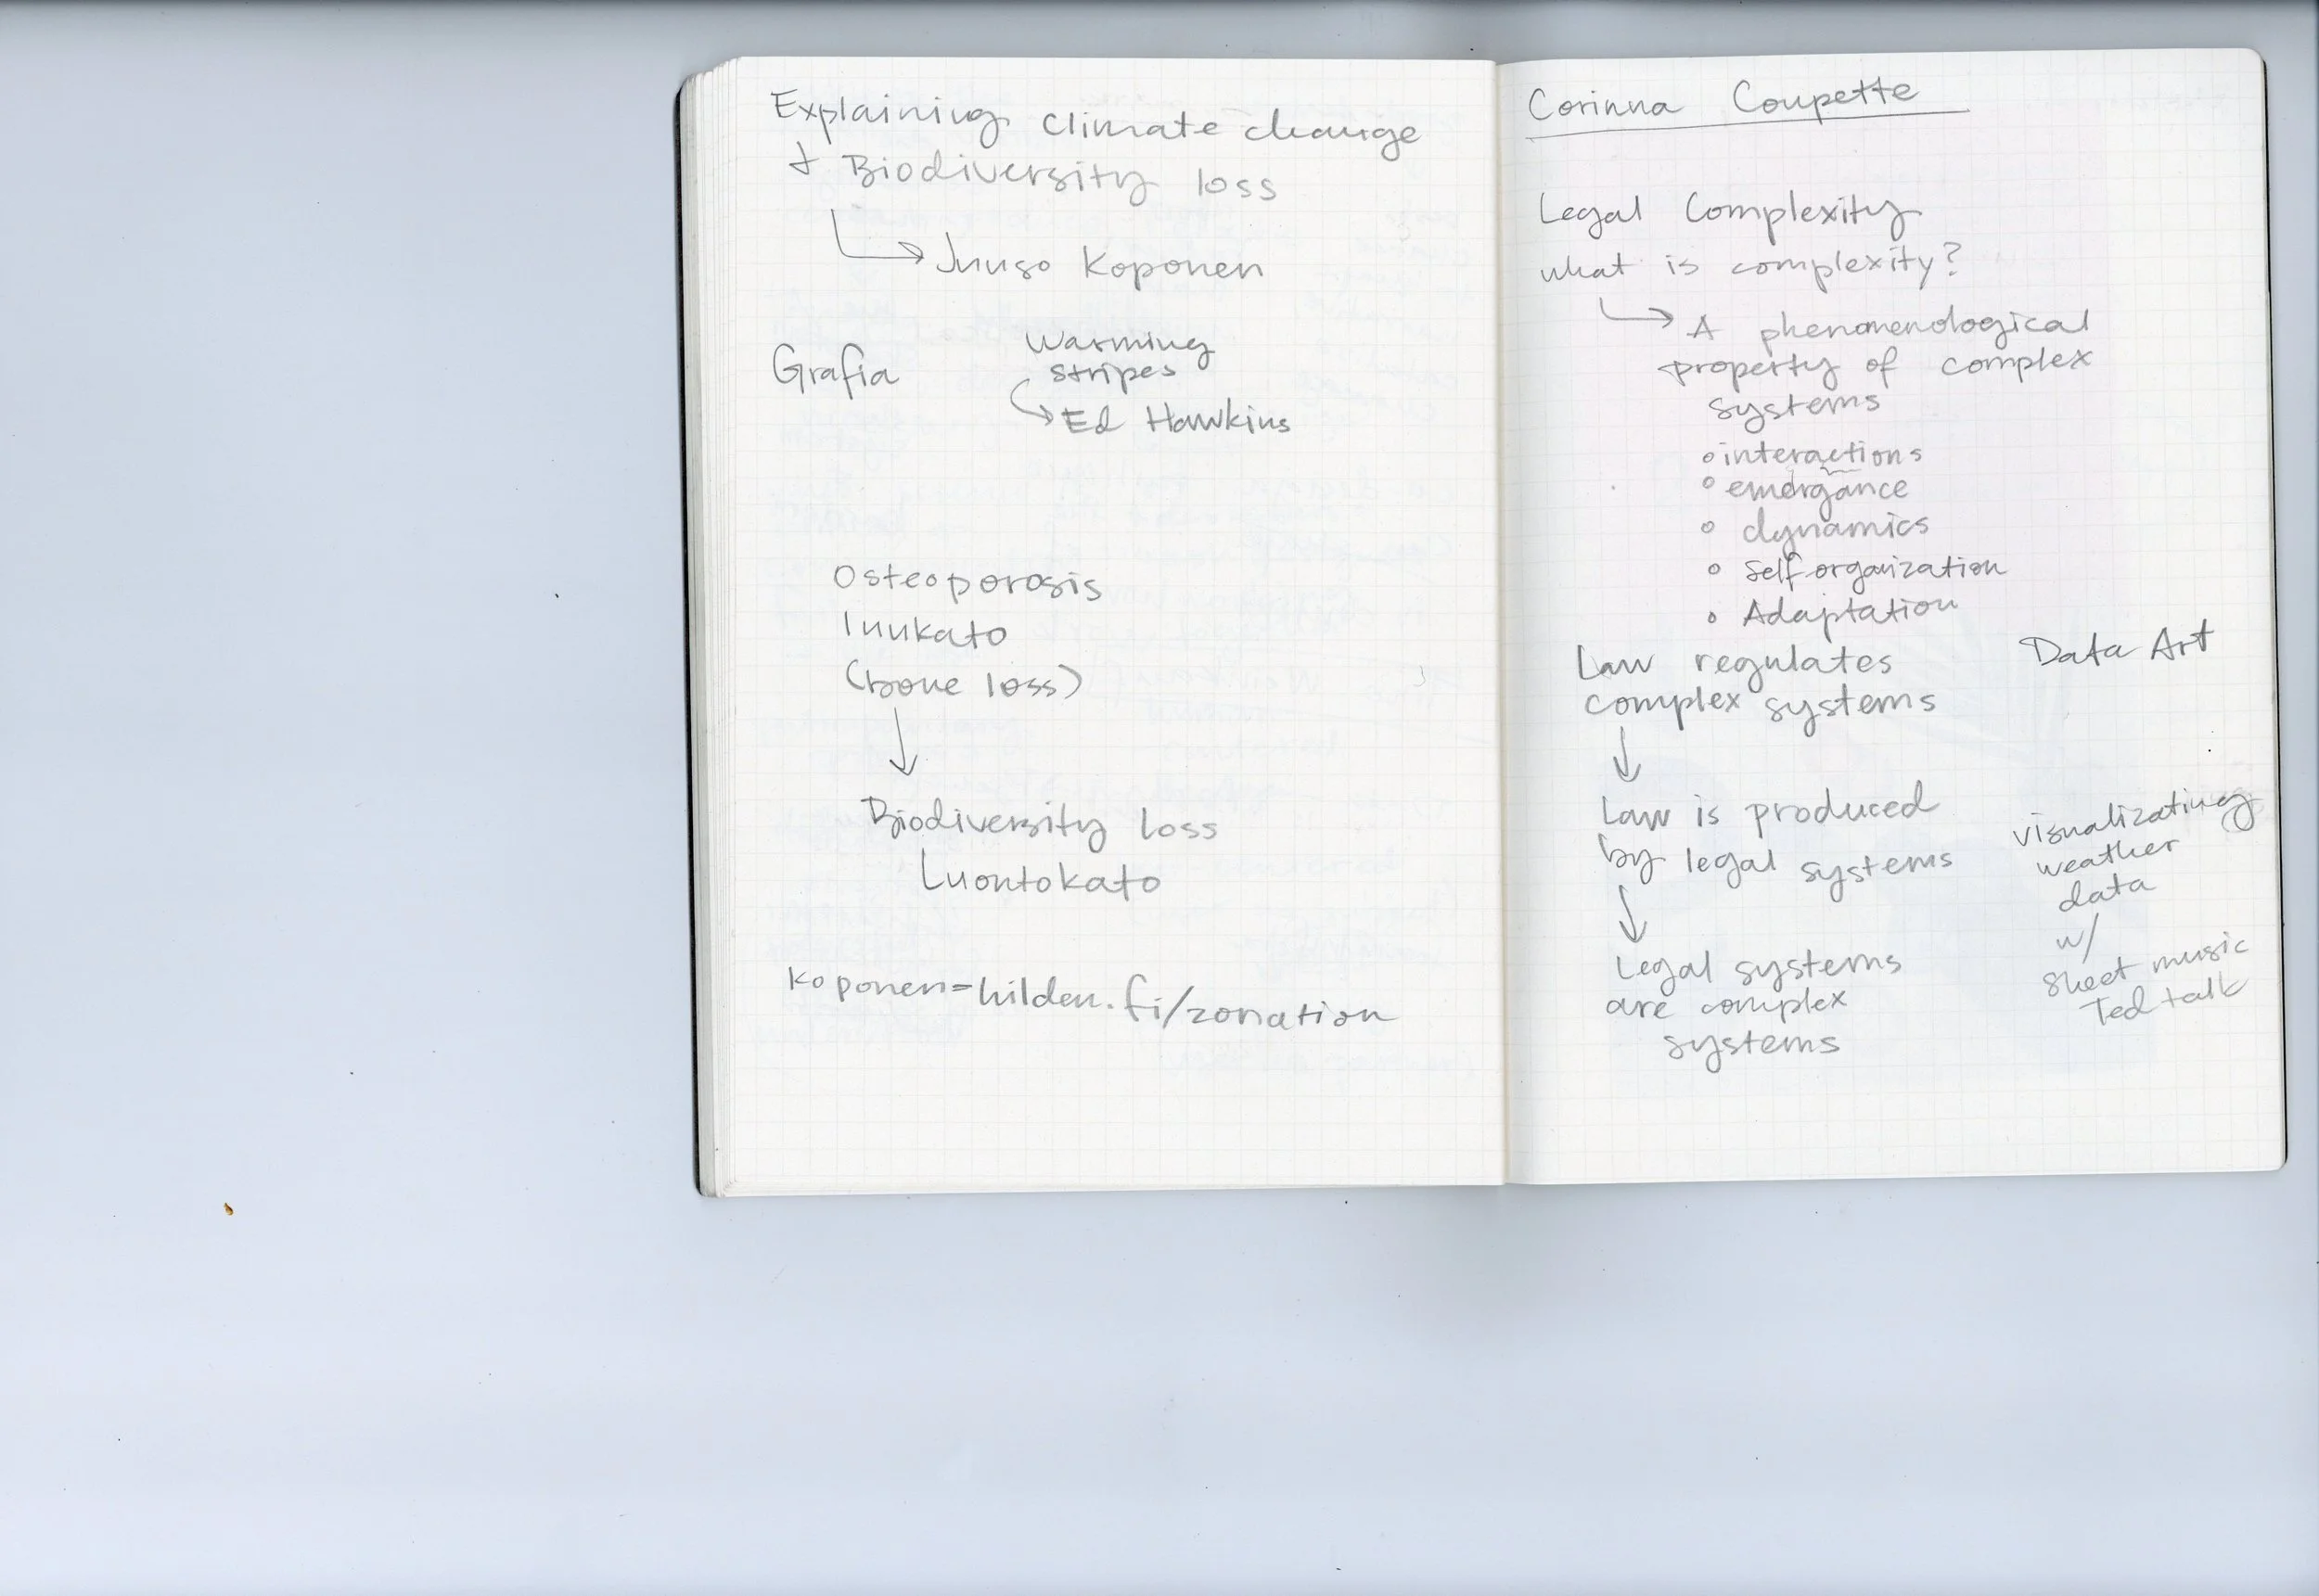 Explaining climate change
+ Biodiversity loss
Juuso Koponen
Grafia
Warming
stripes
Ed Hawkins
Osteoporosis
luukato
(bone loss)
Biodiversity loss
Luontokato
koponen-hilden.fi/zonation
Corinna Coupette
Legal Complexity
what is complexity?
A phenomenological
property of complex
systems
interactions
emergance
dynamics
Self organization
Adaptation
Law regulates
complex systems
Law is produced
by legal systems
Legal systems
are complex
systems
Data Art
visualizating
weather
data
w/
sheet music
Ted talk